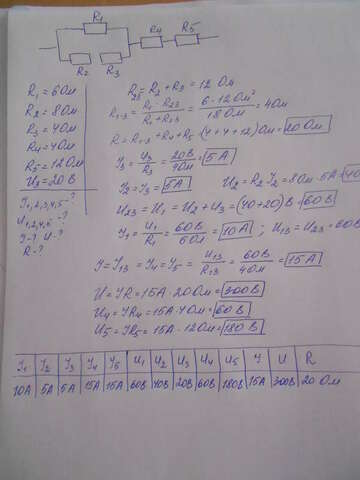 R1
R4 R5
R2 R3
R1 = 6 Ом
R2 = 8 Ом
R3 = 4 Ом
R4 = 4 Ом
R5 = 12 Ом
U3 = 20 В
I1,2,3,4,5 - ?
U1,2,4,5 - ?
I - ? U - ?
R - ?
R23 = R2 + R3 = 12 Ом
R1-3 = R1 · R23 / R1 + R23 = 6 · 12 Ом² / 18 Ом = 4 Ом
R = R1-3 + R4 + R5 = (4 + 4 + 12) Ом = 20 Ом
I3 = U3 / R3 = 20 В / 4 Ом = 5 А
I2 = I3 = 5 А U2 = R2 · I2 = 8 Ом · 5 А = 40
U23 = U1 = U2 + U3 = (40 + 20) В = 60 В
I1 = U1 / R1 = 60 В / 6 Ом = 10 А ; U13 = U23 = 60 В
I = I13 = I4 = I5 = U13 / R13 = 60 В / 4 Ом = 15 А
U = IR = 15 А · 20 Ом = 300 В
U4 = IR4 = 15 А · 4 Ом = 60 В
U5 = IR5 = 15 А · 12 Ом = 180 В
I1 I2 I3 I4 I5 U1 U2 U3 U4 U5 I U R
10А 5А 5А 15А 15А 60В 40В 20В 60В 180В 15А 300В 20 Ом